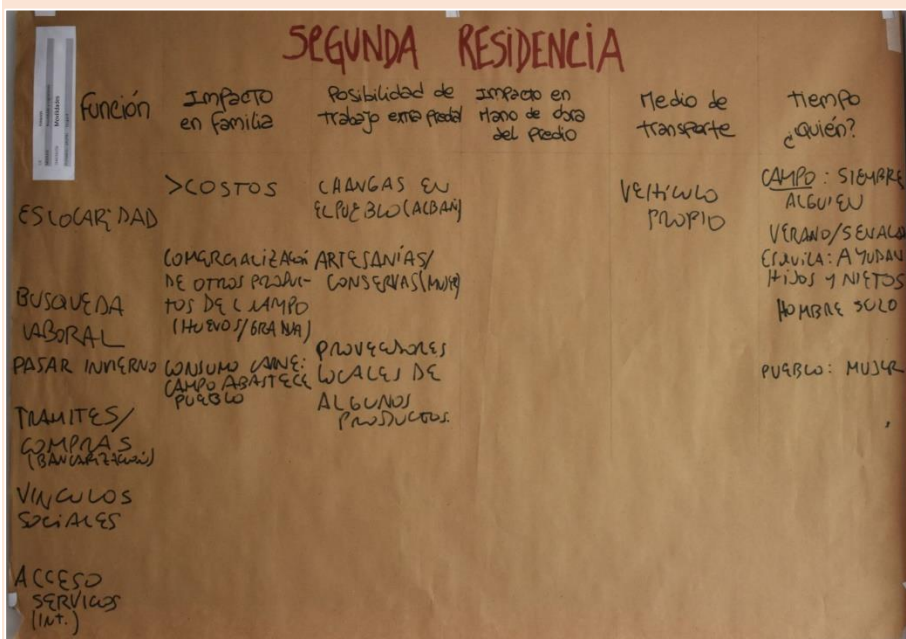 SEGUNDA RESIDENCIA
Función
ESLOCARIDAD
BUSQUEDA
LABORAL
PASAR INVIERNO
TRAMITES/
COMPRAS
(BANCARIZACIÓN)
VINCULOS
SOCIALES
ACCESO
SERVICIOS
(INT.)
Impacto
en Familia
>COSTOS
COMERCIALIZACIÓN
DE OTROS PRODUC-
TOS DEL CAMPO
(HUEVOS/GRANJA)
CONSUMO CARNE:
CAMPO ABASTECE
PUEBLO
Posibilidad de
trabajo extra predial
CHANGAS EN
EL PUEBLO (ALBAÑ)
ARTESANÍAS/
CONSERVAS (MUJER)
PROVEEDORES
LOCALES DE
ALGUNOS
PRODUCTOS.
Impacto en
Mano de obra
del predio
Medio de
transporte
VEHÍCULO
PROPIO
tiempo
¿quién?
CAMPO: SIEMPRE
ALGUIEN
VERANO/SEÑALADA
ESQUILA: AYUDAN
HIJOS Y NIETOS
HOMBRE SOLO
PUEBLO: MUJER